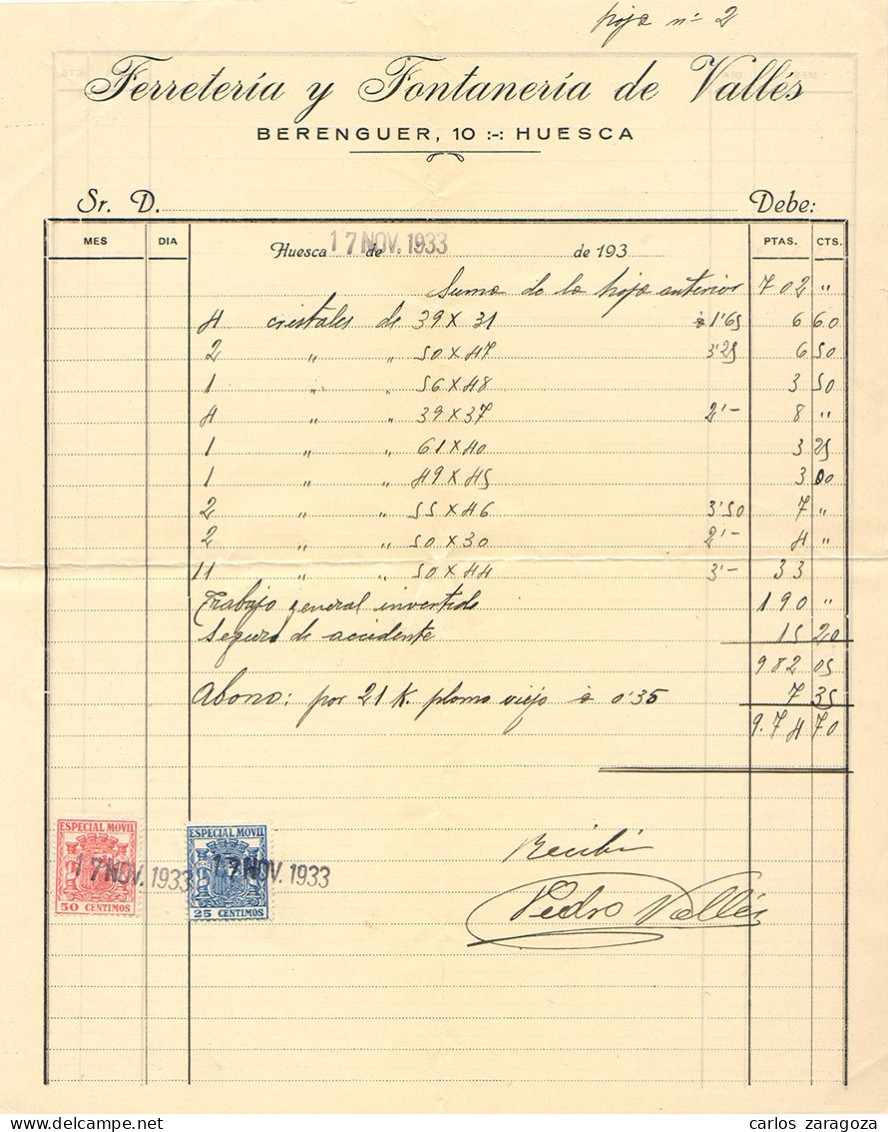 hoja nº 2
Ferretería y Fontanería de Vallés
BERENGUER, 10 :-: HUESCA
Sr. D. Debe:
MES DIA Huesca 17 NOV. 1933 de de 193 PTAS. CTS.
Suma de la hoja anterior 702 "
4 cristales de 39 x 31 à 1'65 6 60
2 " " 50 x 47 3'25 6 50
1 " " 56 x 48 3 50
4 " " 39 x 37 2'- 8 "
1 " " 61 x 40 3 25
1 " " 49 x 45 3 00
2 " " 55 x 46 3'50 7 "
2 " " 50 x 30 2'- 4 "
11 " " 50 x 44 3'- 33
Trabajo general invertido 190 "
Seguro de accidente 15 20
982 05
Abono: por 21 K. plomo viejo à 0'35 7 35
9.74 70
ESPECIAL MOVIL ESPECIAL MOVIL
17 NOV. 1933 17 NOV. 1933
50 CENTIMOS 25 CENTIMOS
Recibí
Pedro Vallés
carlos zaragoza